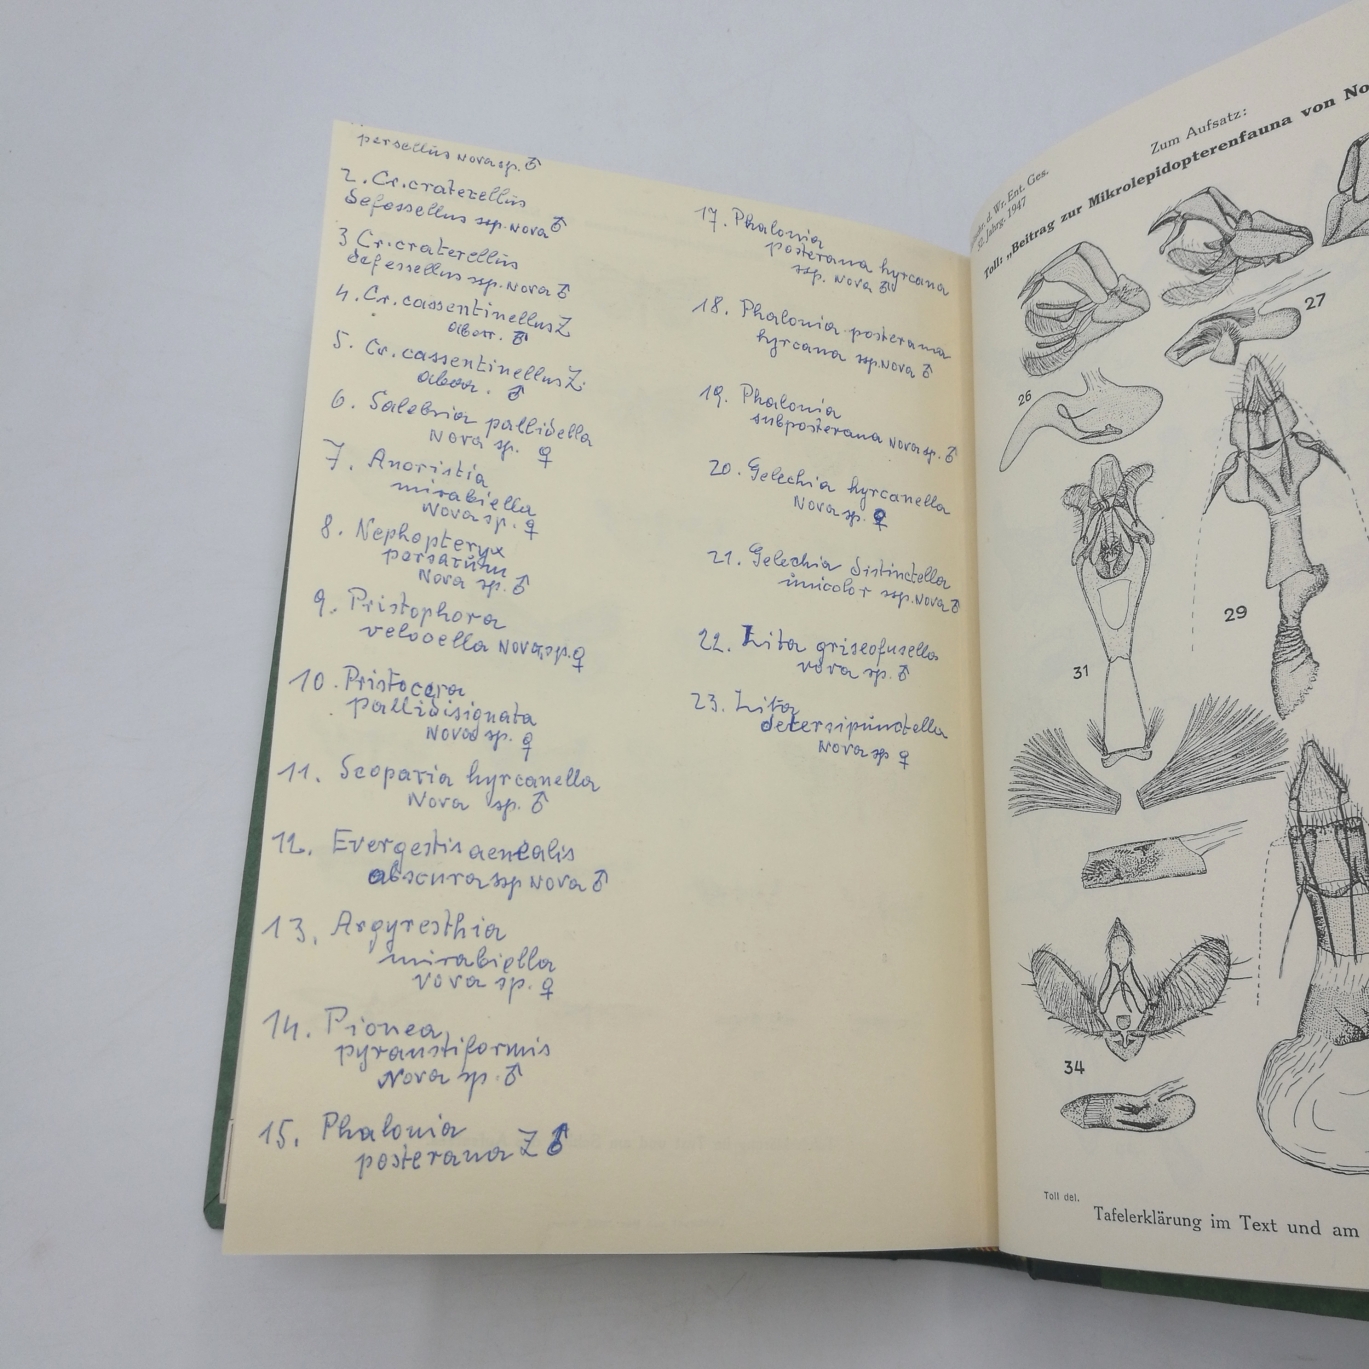 persellus nova sp. ♂
2. Cr. craterellus
defossellus ssp. nova ♂
3 Cr. craterellus
defessellus ssp. nova ♂
4. Cr. cassentinellus Z
aberr. ♂
5. Cr. cassentinellus Z.
aberr. ♂
6. Salebria pallidella
Nova sp. ♀
7. Anoristia
mirabiella
Nova sp. ♀
8. Nephopteryx
persarum
Nova sp. ♂
9. Pristophora
velocella Nova sp. ♀
10. Pristocera
pallidisignata
Nova sp. ♀
11. Scoparia hyrcanella
Nova sp. ♂
12. Evergestis aenealis
obscura ssp Nova ♂
13. Argyresthia
mirabiella
nova sp. ♀
14. Pionea
pyraustiformis
Nova sp. ♂
15. Phalonia
posterana Z ♂
17. Phalonia
posterana hyrcana
ssp. Nova ♂
18. Phalonia posterana
hyrcana ssp. Nova ♂
19. Phalonia
subposterana Nova sp. ♂
20. Gelechia hyrcanella
Nova sp. ♀
21. Gelechia distinctella
unicolor ssp. Nova ♂
22. Lita griseofusella
nova sp. ♂
23. Lita
detersipunctella
Nova sp ♀
d. Wr. Ent. Ges.
Jahrg. 1947
Zum Aufsatz:
Toll: „Beitrag zur Mikrolepidopterenfauna von No
27
26
29
31
34
Toll del.
Tafelerklärung im Text und am